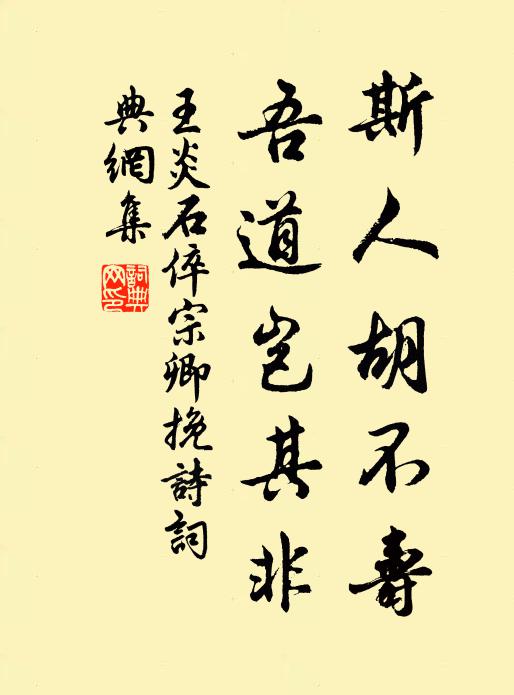 斯人胡不壽
吾道豈其非
王炎石倅宗卿挽詩詞
典網集
詞典網印